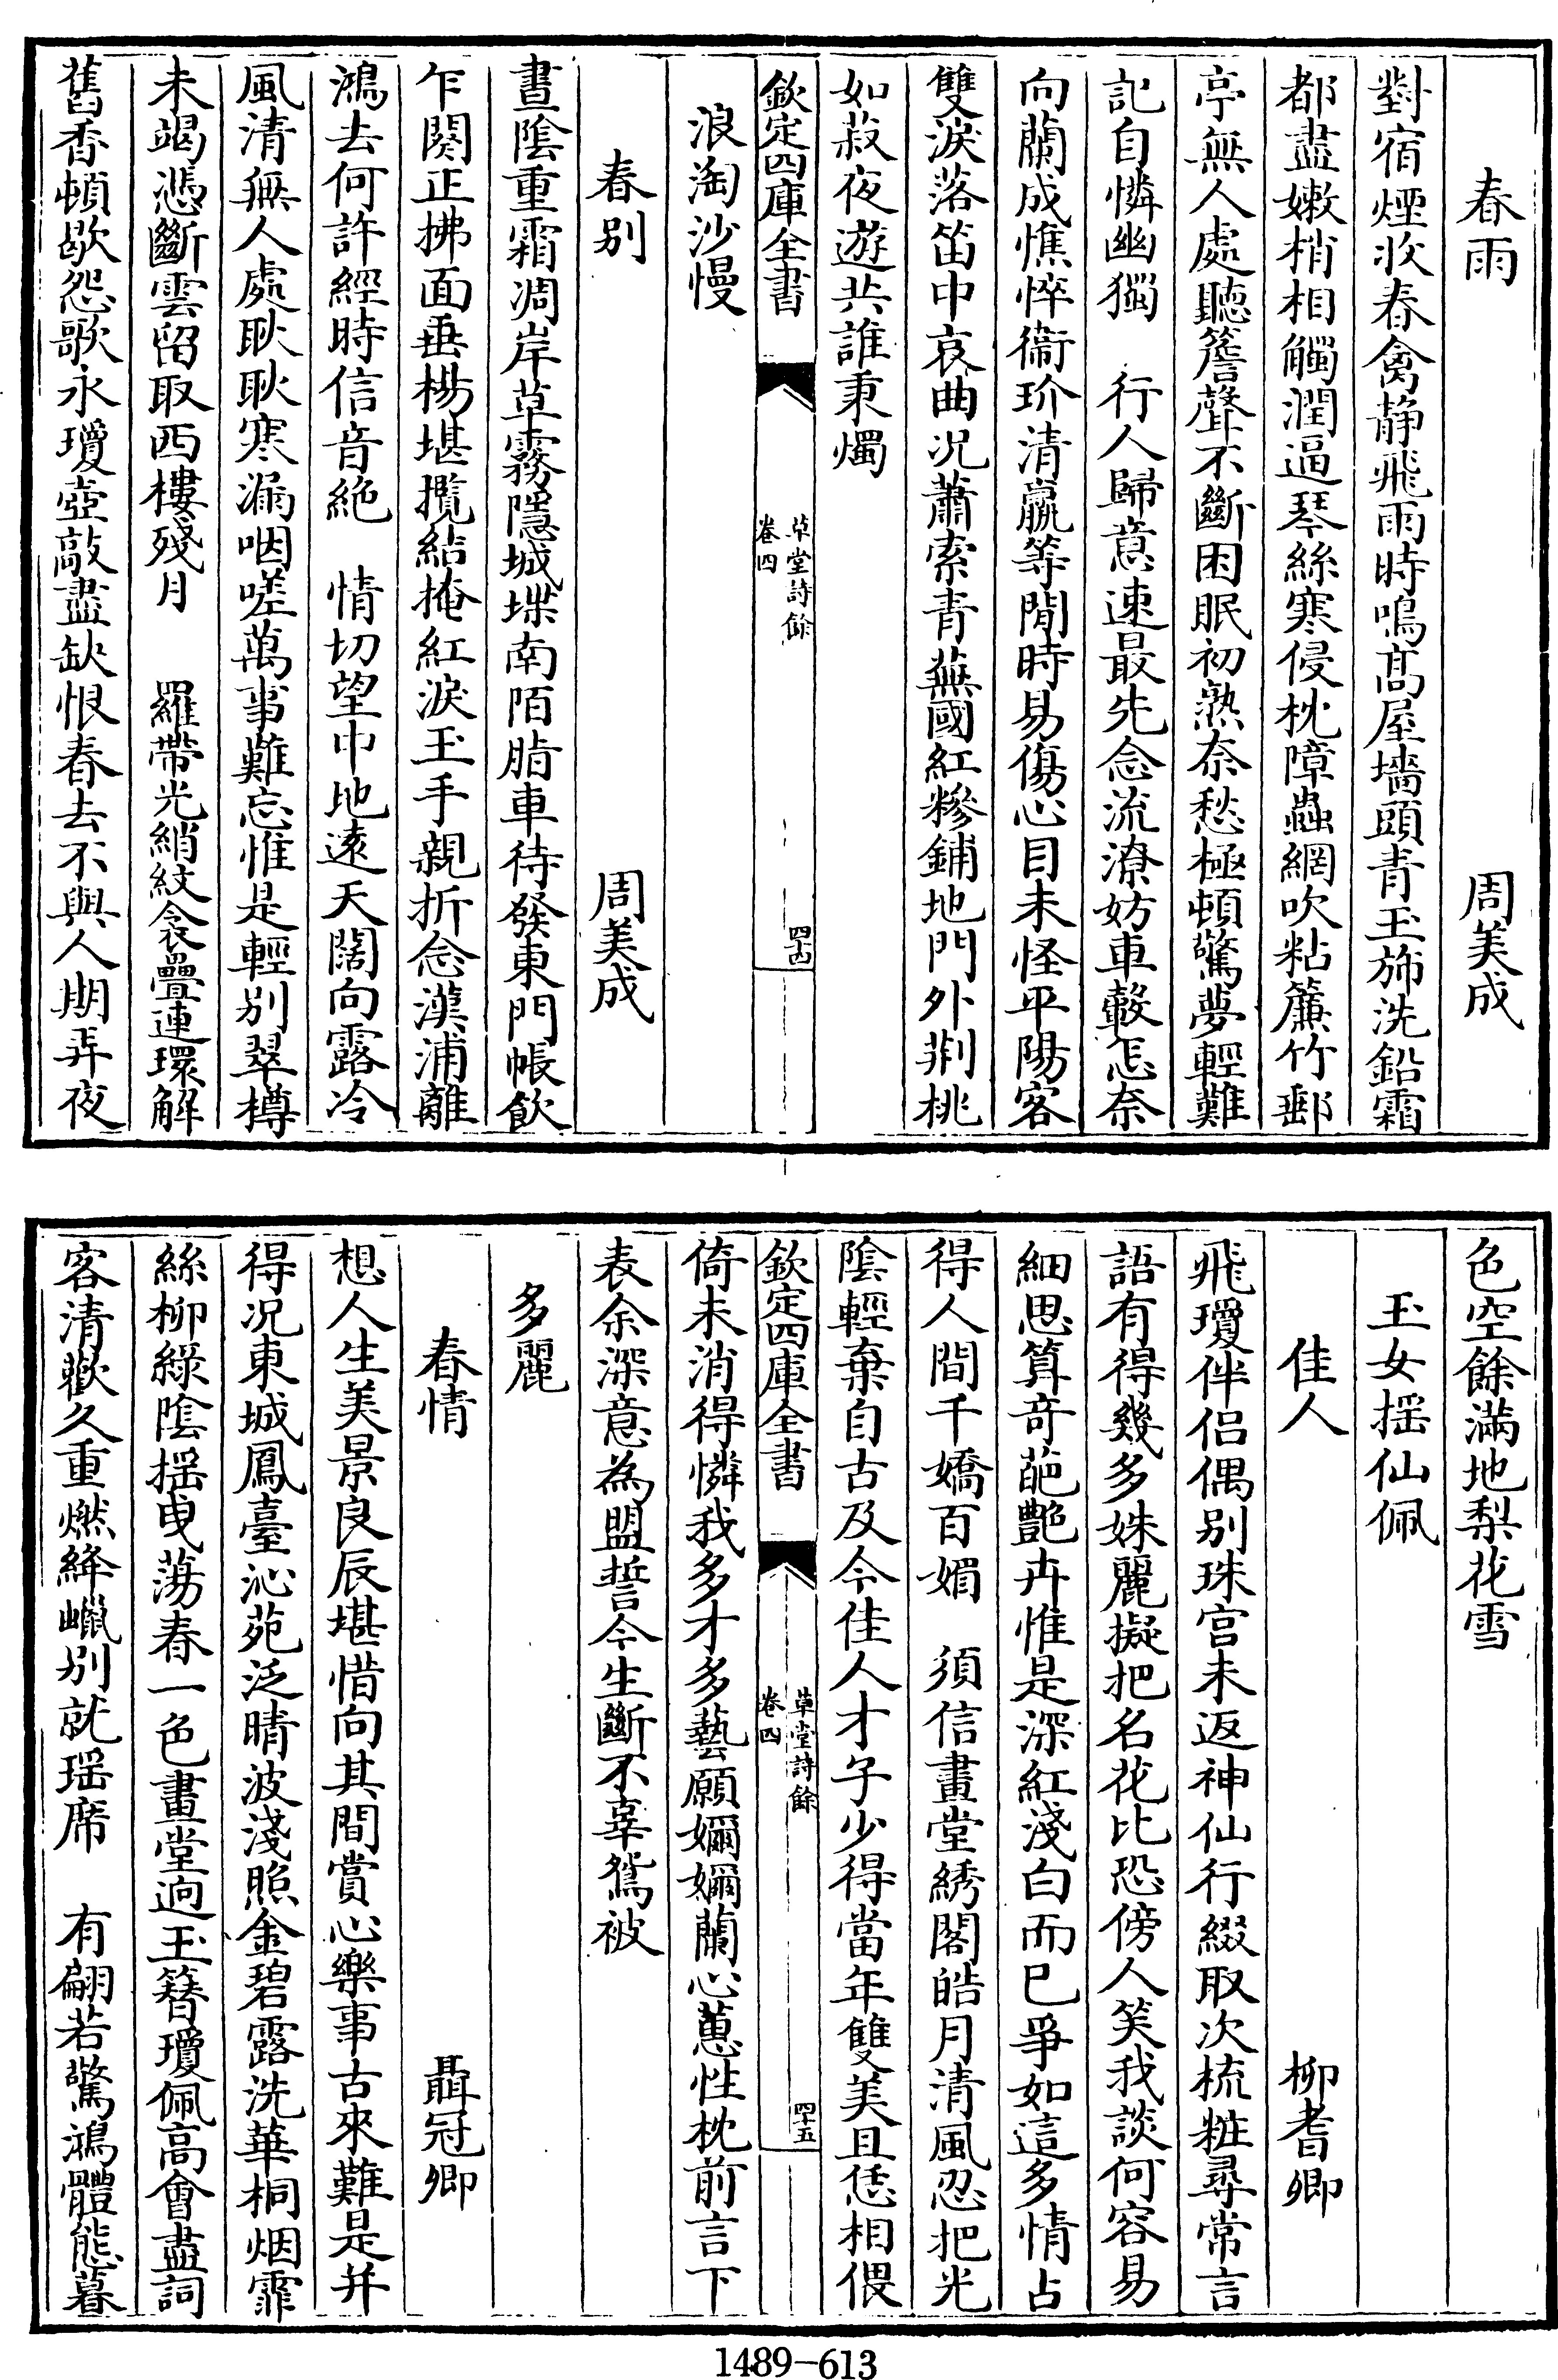 春雨　周美成
對宿煙收春禽静飛雨時鳴髙屋墻頭青玉斾洗鉛霜
都盡嫩梢相觸潤逼琴絲寒侵枕障蟲網吹粘簾竹郵
亭無人處聽簷聲不斷困眠初熟奈愁極頓驚夢輕難
記自憐幽獨　行人歸意速最先念流潦妨車轂怎奈
向蘭成憔悴衞玠清羸等閒時易傷心目未怪平陽客
雙淚落笛中哀曲况蕭索青蕪國紅糝鋪地門外荆桃
如菽夜遊共誰秉燭
欽定四庫全書　草堂詩餘 卷四　四十四
浪淘沙慢
春别　周美成
晝隂重霜凋岸草霧隱城堞南陌脂車待發東門帳飲
乍闋正拂面垂楊堪攬結掩紅淚玉手親折念漢浦離
鴻去何許經時信音絶　情切望中地逺天闊向露冷
風清無人處耿耿寒漏咽嗟萬事難忘惟是輕别翠樽
未竭憑斷雲留取西樓殘月　羅帶光綃紋衾疊連環解
舊香頓歇怨歌永瓊壺敲盡缺恨春去不與人期弄夜
色空餘滿地梨花雪
玉女揺仙佩
佳人　柳耆卿
飛瓊伴侣偶别珠宫未返神仙行綴取次梳粧尋常言
語有得幾多姝麗擬把名花比恐傍人笑我談何容易
細思算竒葩艶卉惟是深紅淺白而已爭如這多情占
得人間千嬌百媚　須信畫堂綉閣皓月清風忍把光
隂輕棄自古及今佳人才子少得當年雙美且恁相偎
欽定四庫全書　草堂詩餘 卷四　四十五
倚未消得憐我多才多藝願嬭嬭蘭心蕙性枕前言下
表余深意為盟誓今生斷不辜鴛被
多麗
春情　聶冠卿
想人生美景良辰堪惜向其間賞心樂事古來難是并
得况東城鳳臺沁苑泛晴波淺照金碧露洗華桐烟霏
絲柳緑隂揺曳蕩春一色畫堂逈玉簪瓊佩高會盡詞
客清歡久重燃絳蠟别就瑶席　有翩若驚鴻體態暮
1489—613